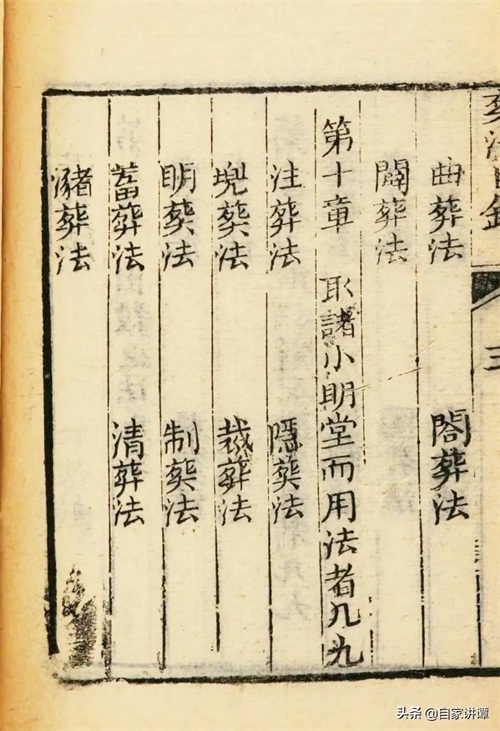 葬法目錄 三
曲葬法 閤葬法
闢葬法
第十章 取諸小明堂而用法者凡九
注葬法 隱葬法
兜葬法 裁葬法
明葬法 制葬法
蓄葬法 清葬法
瀦葬法
头条 @自家讲谭